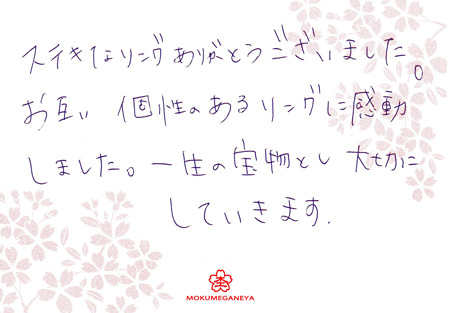 ステキなリングありがとうございました。
お互い個性のあるリングに感動
しました。一生の宝物とし大切に
していきます.
MOKUMEGANEYA